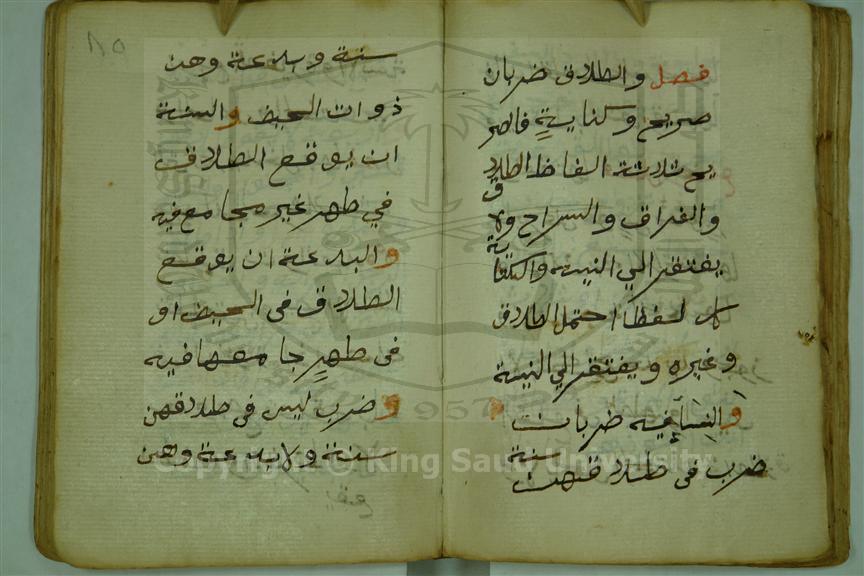 فصل والطلاق ضربان
صريح وكناية فالصر
يح ثلاثة الفاظ الطلاق
والفراق والسراح ولا
يفتقر الي النية والكناية
كل لفظ احتمل الطلاق
وغيره ويفتقر الي النية
والنساء فيه ضربان
ضرب في طلاقهن سنة
سنة وبدعة وهن
ذوات الحيض والسنة
ان يوقع الطلاق
في طهر غير مجامع فيه
والبدعة ان يوقع
الطلاق في الحيض او
في طهرٍ جامعها فيه
وضرب ليس في طلاقهن
سنة ولا بدعة وهن
٨٥
Copyright © King Saud University
1957